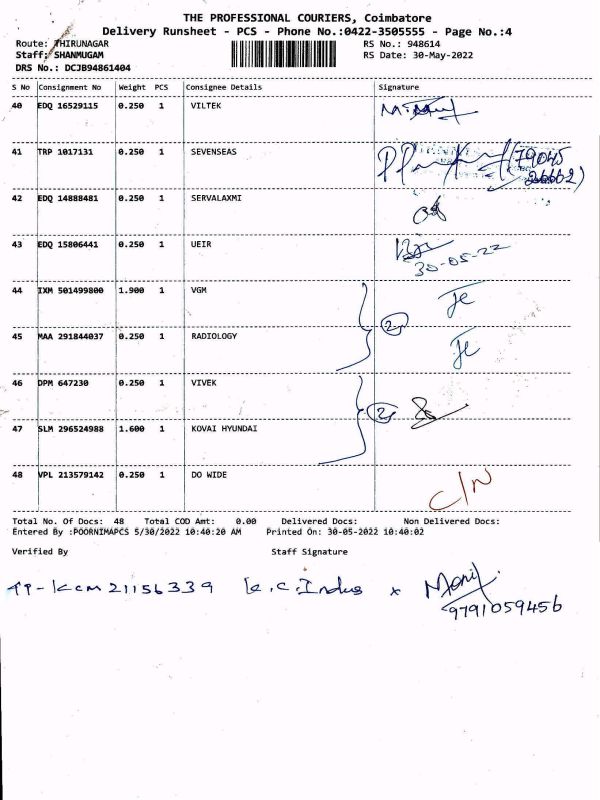 THE PROFESSIONAL COURIERS, Coimbatore
Delivery Runsheet - PCS - Phone No.:0422-3505555 - Page No.:4
Route: THIRUNAGAR RS No.: 948614
Staff: SHANMUGAM RS Date: 30-May-2022
DRS No.: DCJB94861404
S No Consignment No Weight PCS Consignee Details Signature
40 EDQ 16529115 0.250 1 VILTEK
41 TRP 1017131 0.250 1 SEVENSEAS (79045
26662)
42 EDQ 14888481 0.250 1 SERVALAXMI
43 EDQ 15806441 0.250 1 UEIR
30-05-22
44 IXM 501499800 1.900 1 VGM
2
45 MAA 291844037 0.250 1 RADIOLOGY
46 DPM 647230 0.250 1 VIVEK
2
47 SLM 296524988 1.600 1 KOVAI HYUNDAI
48 VPL 213579142 0.250 1 DO WIDE C/N
Total No. Of Docs: 48 Total COD Amt: 0.00 Delivered Docs: Non Delivered Docs:
Entered By :POORNIMAPCS 5/30/2022 10:40:20 AM Printed On: 30-05-2022 10:40:02
Verified By Staff Signature
TP-KCM21156339 K.C.Indus x
9791059456